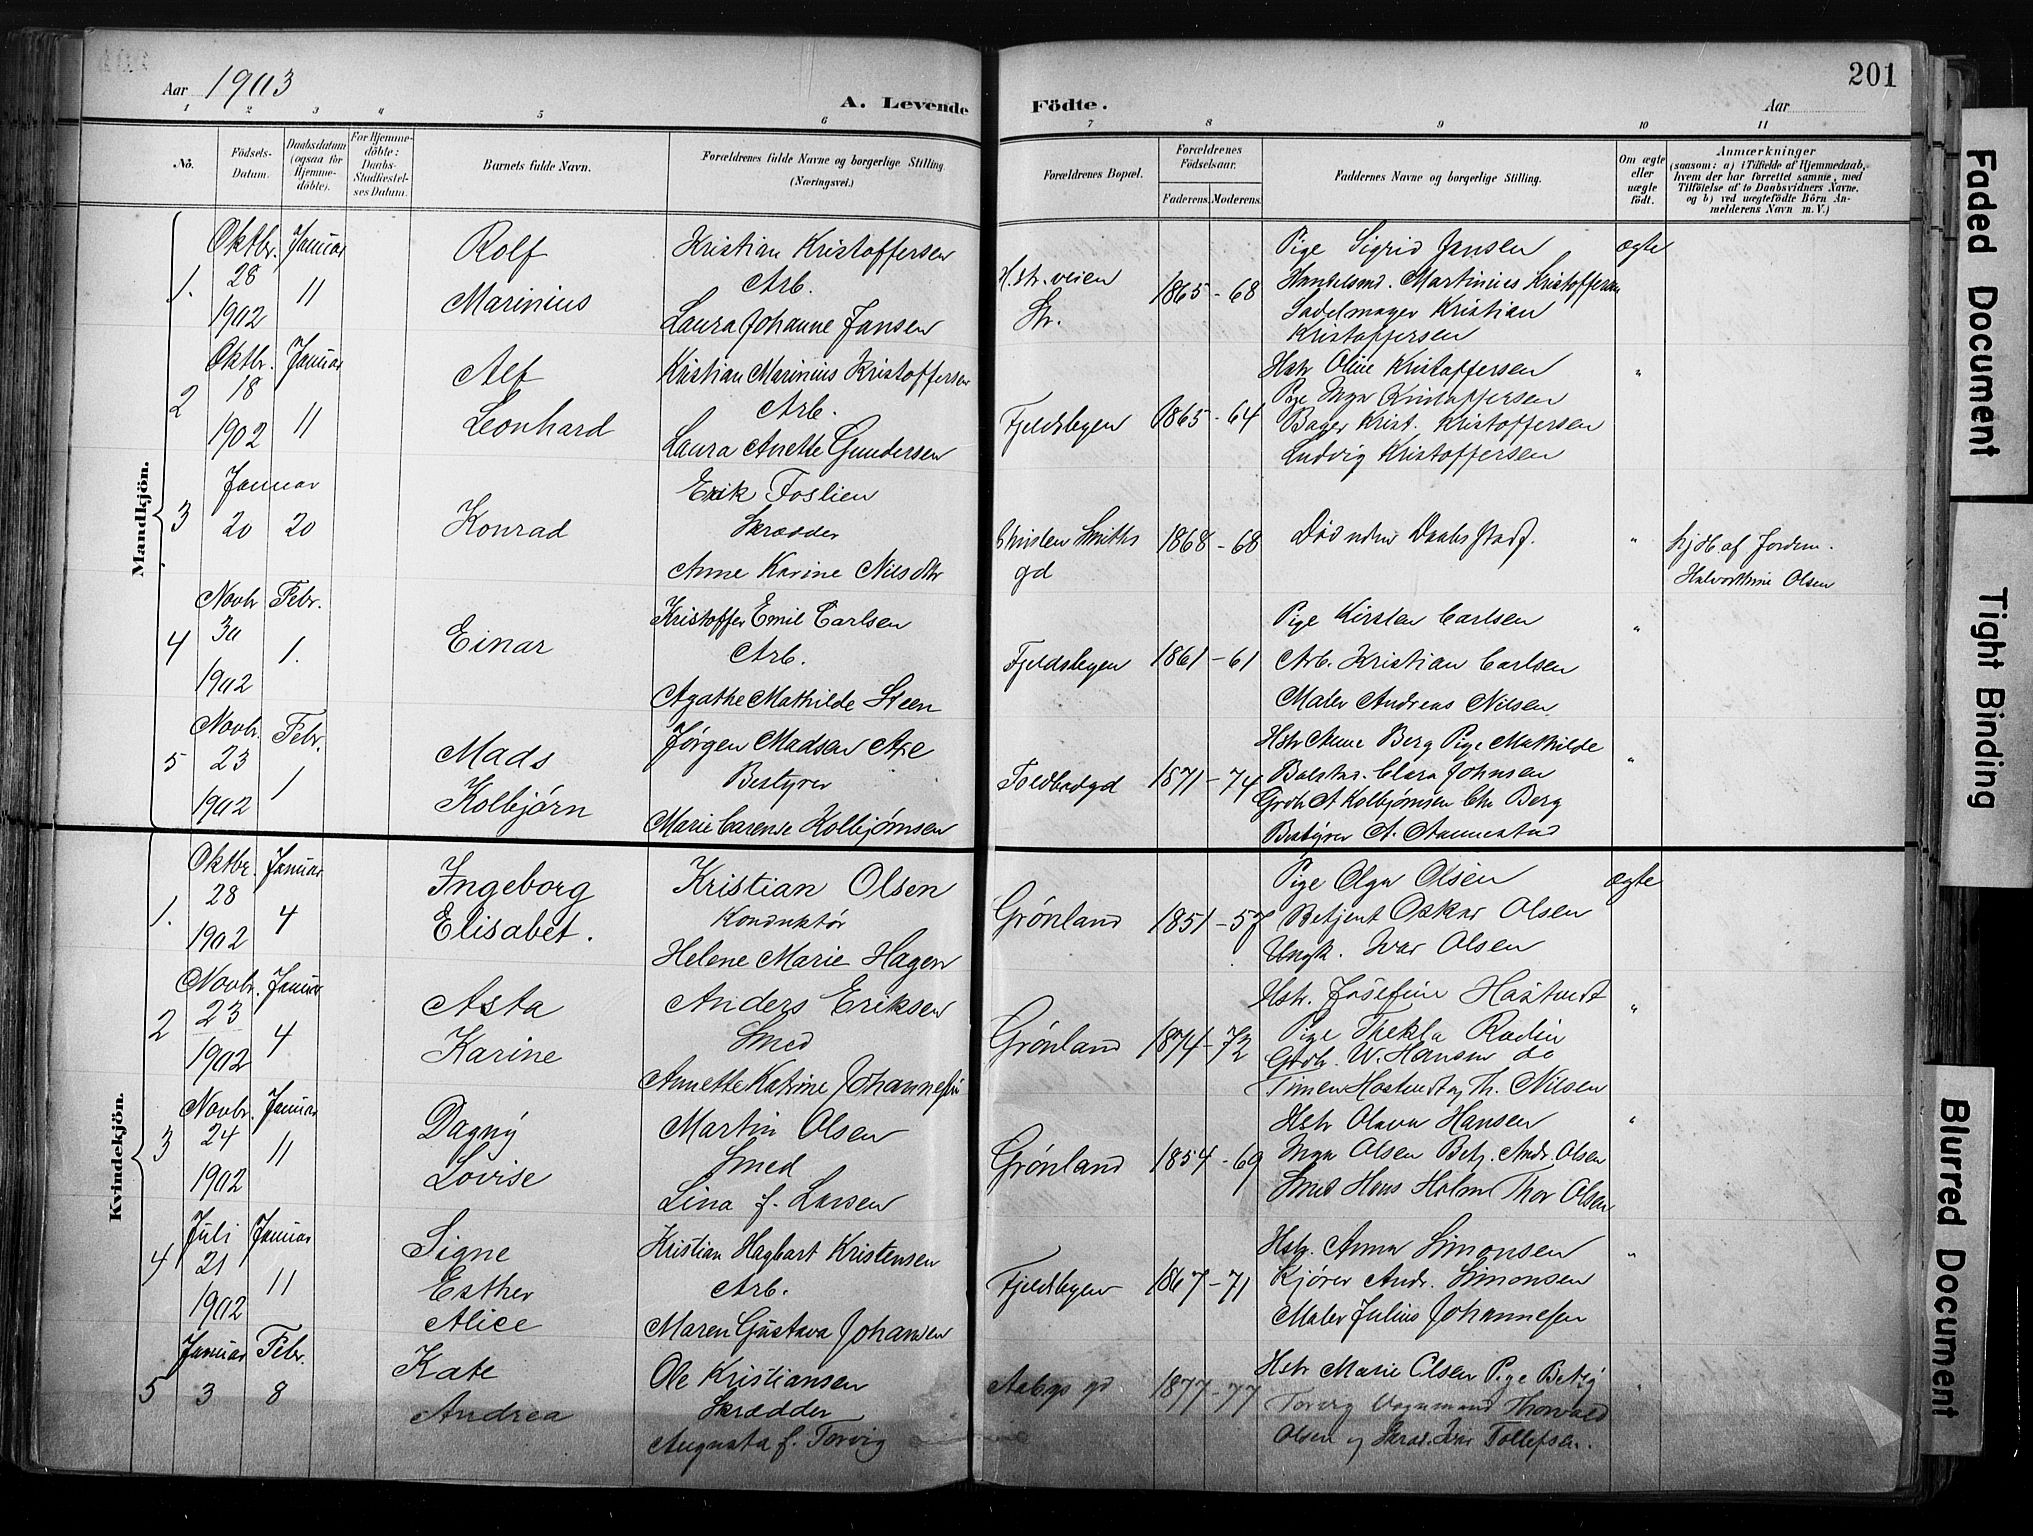 Aar 1903
A. Levende
Födte.
Aar
201
1 2 3 4 5 6 7 8 9 10 11
Nô.
Födsels-Datum.
Daabsdatum (ogsaa for Hjemme-döbte).
For Hjemme-döbte: Daabs-Stadfæstel-ses Datum.
Barnets fulde Navn.
Forældrenes fulde Navne og borgerlige Stilling. (Næringsvei.)
Forældrenes Bopæl.
Forældrenes Födselsaar.
Faderens. Moderens.
Faddernes Navne og borgerlige Stilling.
Om ægte eller uægte födt.
Anmærkninger
(saasom: a) i Tilfælde af Hjemmedaab,
hvem der har forrettet samme, med
Tilföielse af to Daabsvidners Navne.
og b) ved uægtefödte Börn An-
melderens Navn m. V.)
Mandkjön.
1. Oktbr. 28 1902
Januar 11
Rolf
Marinius
Kristian Kristoffersen
Arb.
Laura Johanne Jansen
H.str.veien
Str.
1865 - 68
Pige Sigrid Jansen
Handelsmd. Martinius Kristoffersen
Sadelmager Kristian
Kristoffersen
ægte
2 Oktbr. 18 1902
Januar 11
Alf
Leonhard
Kristian Marinius Kristoffersen
Arb.
Laura Anette Gundersen
Fjeldsbyen
1865 - 64
Hstr Oline Kristoffersen
Pige Inga Kristoffersen
Bager Krist. Kristoffersen
Ludvig Kristoffersen
"
3 Januar 20
20
Konrad
Erik Foslien
Skrædder
Anne Karine Nilsdtr
Smiths
gd
1868 - 68
Död under Daabs Stadf.
"
hjdb af Jordm.
Olsen
4 Novbr 30 1902
Febr. 1.
Einar
Kristoffer Emil Carlsen
Arb.
Agathe Mathilde Steen
Fjeldsbyen
1861 - 61
Pige Kirsten Carlsen
Arb. Kristian Carlsen
Maler Andreas Nilsen
"
5 Novbr. 23 1902
Febr. 1
Mads
Kolbjørn
Jørgen Madsen Aae
Bestyrer
Marie Carense Kolbjørnsen
Toldbodgd
1871 - 74
Hstr Anne Berg Pige Mathilde
Clara Johnsen
Grdb A Kolbjørnsen Chr Berg
Bestyrer A. Aannestad
"
Kvindekjön.
1. Oktbr. 28 1902
Januar 4
Ingeborg
Elisabet.
Kristian Olsen
Konduktør
Helene Marie Hagen
Grønland
1851 - 57
Pige Olga Olsen
Betjent Oskar Olsen
Ungk. Ivar Olsen
ægte
2 Novbr. 23 1902
Januar 4
Asta
Karine
Anders Eriksen
Smed
Annette Katrine Johannesen
Grønland
1874 - 72
Hstr. Josefine Hastvedt
Pige Thekla Rodin
Grdb. W. Hansen do
Timen Hastvedt og Th. Nilsen
"
3 Novbr. 24 1902
Januar 11
Dagny
Lovise
Martin Olsen
Smed
Lina f. Larsen
Grønland
1854 - 69
Hstr Olava Hansen
Inga Olsen Betj. Andr. Olsen
Smed Hans Holm Thor Olsen
"
4 Juli 21 1902
Januar 11
Signe
Esther
Alice
Kristian Hagbart Kristensen
Arb.
Maren Gustava Johansen
Fjeldsbyen
1867 - 71
Hstr. Anna Simonsen
Kjører Andr. Simonsen
Maler Julius Johannesen
"
5 Januar 3
Febr. 8
Kate
Andrea
Ole Kristiansen
Skrædder
Augusta f. Torvig
Aabys gd
1877 - 77
Hstr Marie Olsen Pige Betzy
Torvig Vognmand Thorvald
Olsen og Skræd. Ivar Tollefsen.
"
Faded Document
Tight Binding
Blurred Document